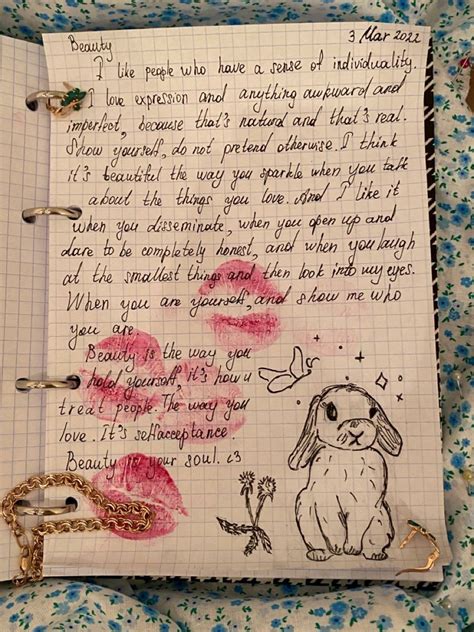 Beauty
3 Mar 2022
I like people who have a sense of individuality.
I love expression and anything awkward and
imperfect, because that's natural and that's real.
Show yourself, do not pretend otherwise. I think
it's beautiful the way you sparkle when you talk
about the things you love. And I like it
when you disseminate, when you open up and
dare to be completely honest, and when you laugh
at the smallest things and then look into my eyes.
When you are yourself, and show me who
you are
Beauty is the way you
hold yourself, it's how u
treat people. The way you
love. It's selfacceptance.
Beauty is your soul. <3